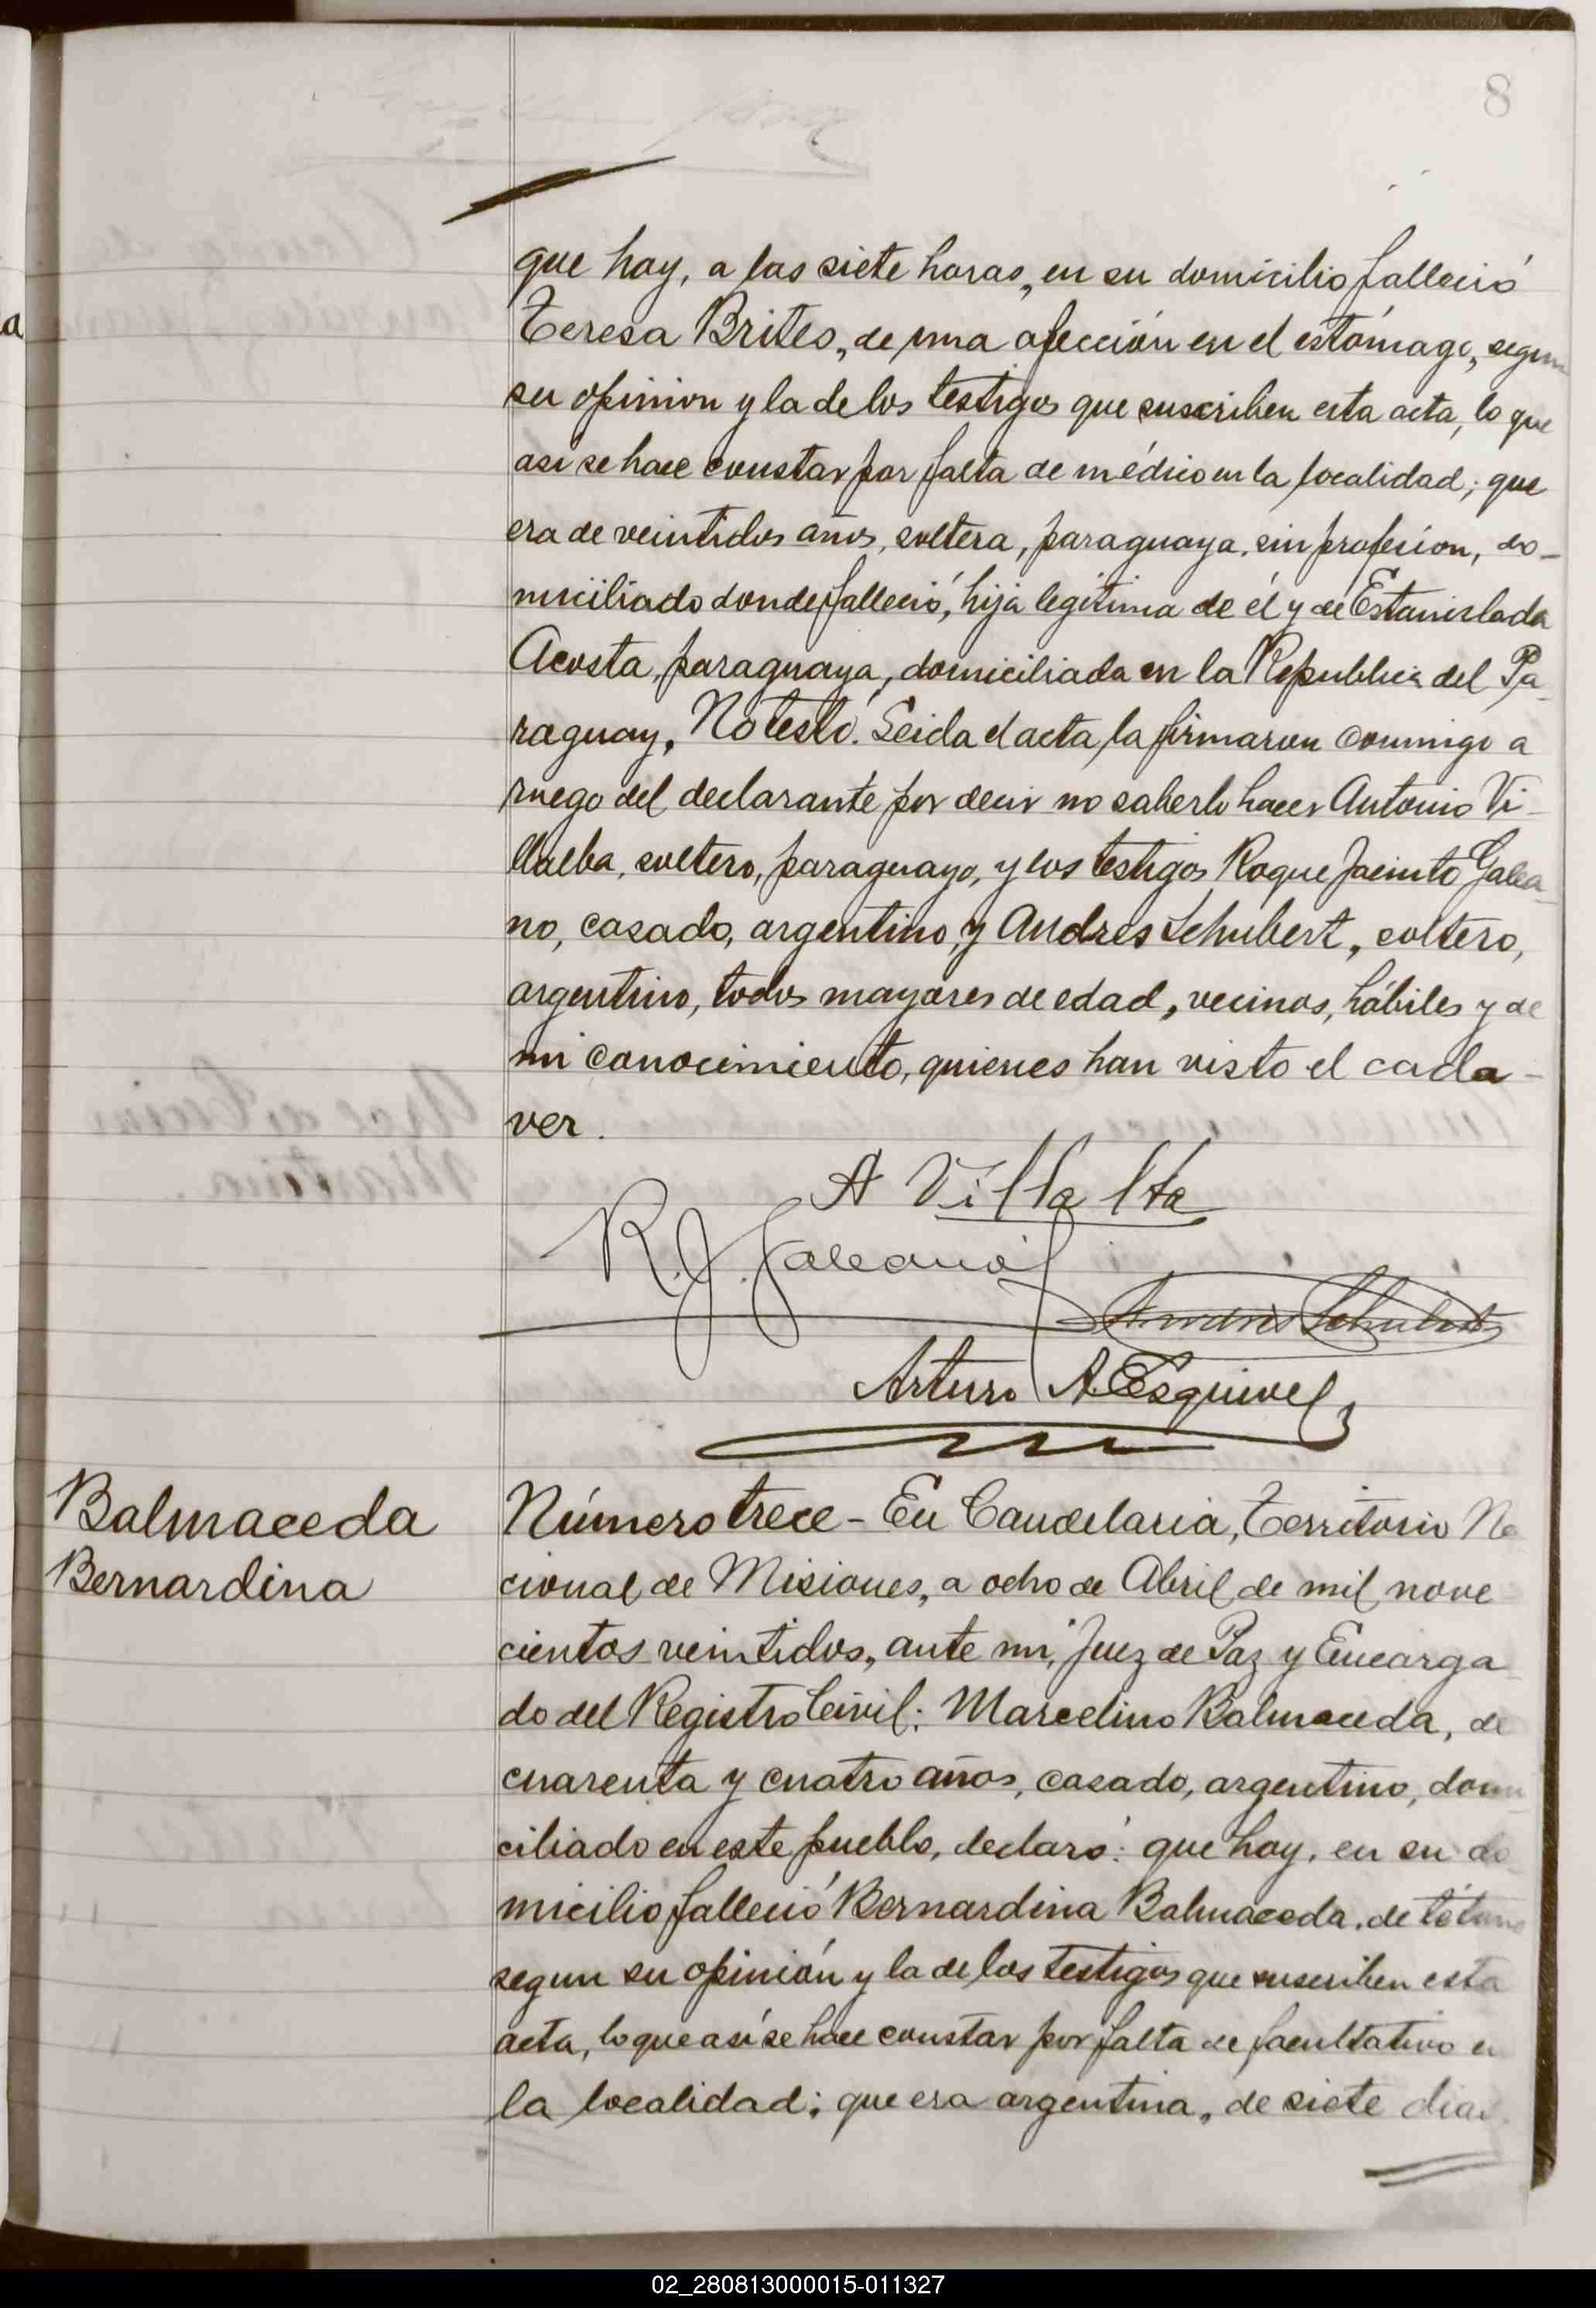 8
a
que hoy, a las siete horas, en su domicilio falleció
Teresa Brites, de una afección en el estómago, segun
su opinion y la de los testigos que suscriben esta acta, lo que
asi se hace constar por falta de médico en la localidad; que
era de veintidos años, soltera, paraguaya, sin profesion, do-
miciliado donde falleció, hija legítima de él y de Estanislada
Acosta, paraguaya, domiciliada en la Republica del Pa-
raguay, No testó. Leida el acta la firmaron conmigo a
ruego del declarante por decir no saberlo hacer Antonio Vi-
llalba, soltero, paraguayo, y los testigos Roque Jacinto Galea-
no, casado, argentino, y Andres Schubert, soltero,
argentino, todos mayores de edad, vecinos, hábiles y de
mi conocimiento, quienes han visto el cada-
ver.
A Villalta
R. J. Galeano
Andrés Schubert
Arturo A. Esquivel
Balmaceda
Bernardina
Número trece - En Candelaria, Territorio Na
cional de Misiones, a ocho de Abril de mil nove
cientos veintidos, ante mi, Juez de Paz y Encarga
do del Registro Civil: Marcelino Balmaceda, de
cuarenta y cuatro años, casado, argentino, domi
ciliado en este pueblo, declaró: que hoy, en su do
micilio falleció Bernardina Balmaceda, de tétano
segun su opinión y la de los testigos que suscriben esta
acta, lo que así se hace constar por falta de facultativo en
la localidad; que era argentina, de siete dias
02_280813000015-011327